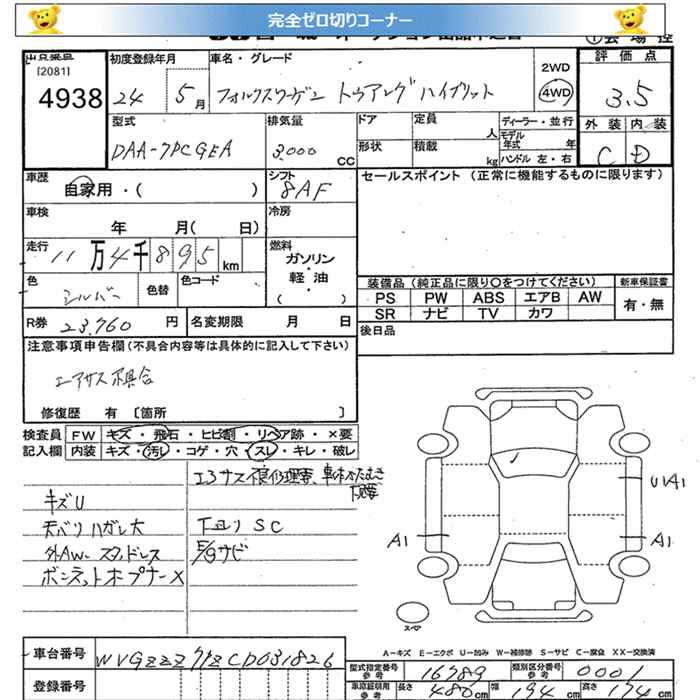 完全ゼロ切りコーナー
出品番号
[2081]
4938
初度登録年月
24 5月
車名・グレード
フォルクスワーゲン トゥアレグハイブリット
2WD
4WD
評価点
3.5
外装 内装
C D
型式
DAA-7PCGEA
排気量
3,000 CC
ドア
定員 人
形状
積載 kg
ディーラー・並行
モデル年式 年
ハンドル 左・右
車歴
自家用・( )
シフト
8AF
セールスポイント (正常に機能するものに限ります)
車検
年 月( 日)
冷房
走行
11万4千895km
燃料
ガソリン
・
軽油
( )
色
シルバー
色替
色コード
装備品 (純正品に限り○をつけてください)
PS PW ABS エアB AW
SR ナビ TV カワ
新車保証書
有・無
R券 23,760 円
名変期限 月 日
後日品
注意事項申告欄 (不具合内容等は具体的に記入して下さい)
エアサス不具合
修復歴 有 〔箇所 〕
検査員記入欄
FW キズ・飛石・ヒビ割・リペア跡・×要
内装 キズ・汚し・コゲ・穴・スレ・キレ・破レ
エアサス不良修理要、
キズU
天バリハガレ大
下廻りSC
外AW-スタッドレス
E/Gサビ
ボンネットオープナーX
U1A1
A1
A1
スペア
A-キズ E-エクボ U-凹み W-補修跡 S-サビ C-腐食 XX-交換済
車台番号 WVGZZZ7PZCD031826
型式指定番号参考 16789
類別区分番号参考 0001
登録番号
車庫証明用参考 長さ 480cm 幅 194cm 高さ 174cm